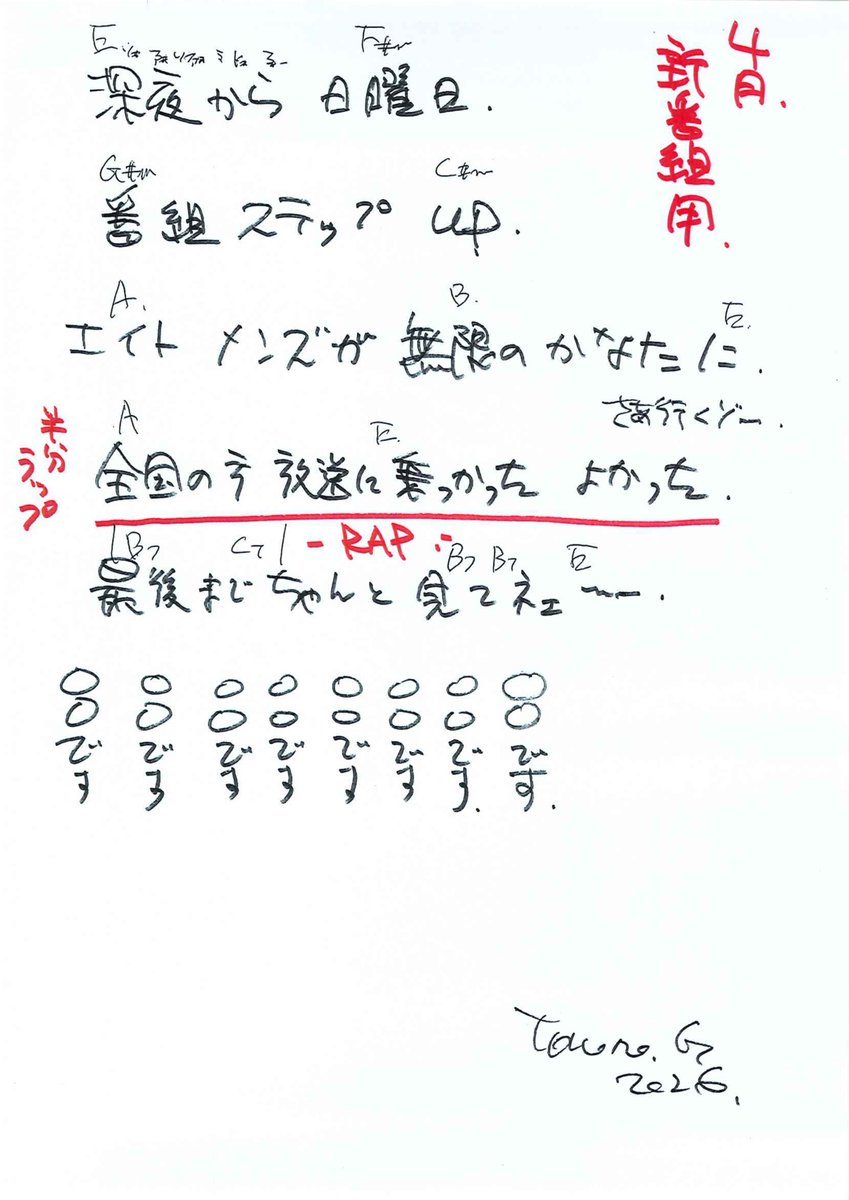 4月.
新番組用.
E F#m
深夜から 日曜日.
G#m C#m
番組 ステップ up.
A. B. E.
エイト メンズが 無限の かなたに.
さあ行くゾー.
半分
ラップ
A E.
全国の 放送に乗っかっち よかっち.
B7 C7 - RAP - B7 B7 E
最後まで ちゃんと 見てネェ〜.
○○です ○○です ○○です ○○です ○○です ○○です ○○です. ○○です.
2026.